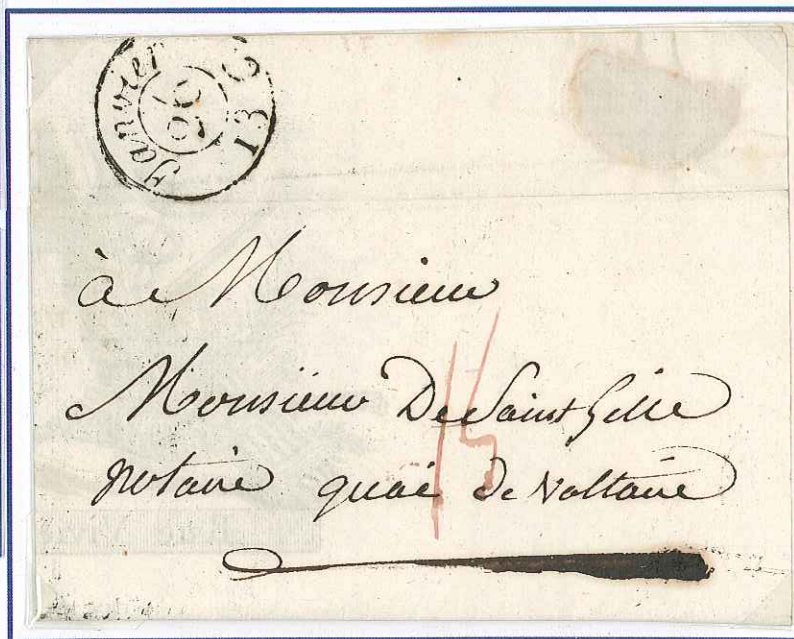 Janvier
26
13
à Monsieur
Monsieur De Saint Gille
notaire quai de Voltaire
15